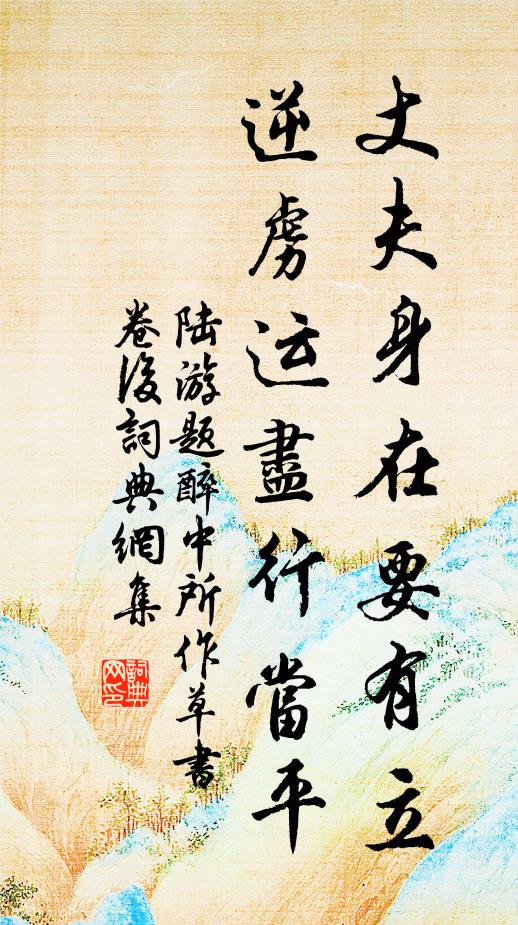 丈夫身在要有立
逆虏运盡行當平
陆游题醉中所作草書
卷後詞典網集
詞典网印